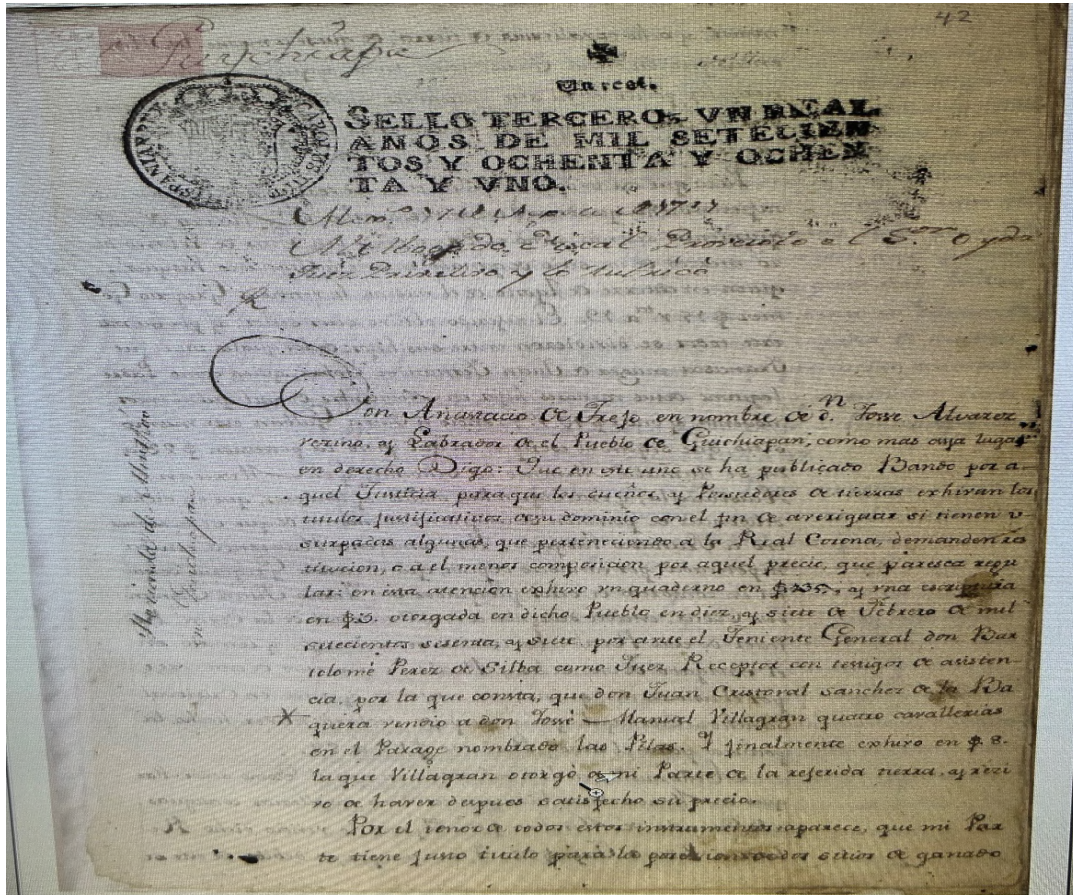 42
Un real.
SELLO TERCERO, VN REAL
AÑOS DE MIL SETECIEN-
TOS Y OCHENTA Y OCHEN-
TA Y VNO.
Fiscal
y lo rubricó
Don Anastacio de Trejo en nombre de dn. Josse Alvarez
vezino, y Labrador de el Pueblo de Guichiapan, como mas aya lugar
en derecho Digo: Que en este año se ha publicado Bando por a-
quel Justicia, para que los dueños, y Posedores de tierras exhivan los
titulos justificativos de su dominio con el fin de averiguar si tienen v-
surpadas algunas, que perteneciendo a la Real Corona, demanden res
titucion, o a el menos composicion por aquel precio, que paresca regu
lar: en esta atencion exhivo un quaderno en y una escriptura
en otorgada en dicho Pueblo en diez, y siete de Febrero de mil
setecientos sesenta, y siete por ante el Teniente General don Bar
tolomé Perez de Silba como Juez Receptor con testigos de asisten-
cia, por la que consta, que don Juan Cristoval Sanchez de la Ba
quera vendio a don Josse Manuel Villagran quatro cavallerias
en el Parage nombrado las Pilas. Y finalmente exhivo en f 8.
la que Villagran otorgó a mi Parte de la referida tierra, y rezi
vo de haver despues satisfecho su precio.
Por el tenor de todos estos instrumentos aparece, que mi Par
te tiene justo titulo para la de dos sitios de ganado